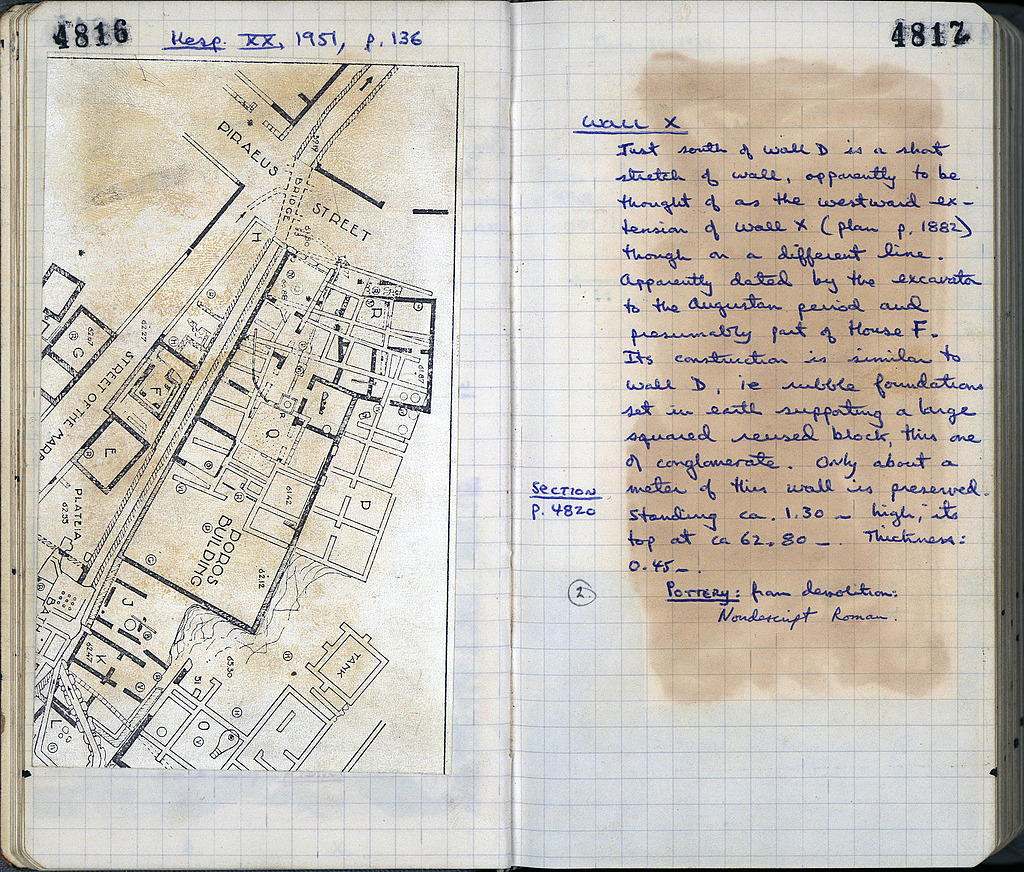 4816
Hesp. XX, 1951, p. 136
PIRAEUS
STREET
BRIDGE
H
R
G
62.27
STREET OF THE MARB
F
E
P
Q
61.42
D
PLATEIA
62.55
POROS
BUILDING
62.12
BATH
J
K
62.47
L
65.30
TANK
O
4817
Wall X
Just south of wall D is a short
stretch of wall, apparently to be
thought of as the westward ex-
tension of wall X (plan p. 1882)
though on a different line.
Apparently dated by the excavator
to the Augustan period and
presumably part of House F.
Its construction is similar to
wall D, ie rubble foundations
set in earth supporting a large
squared reused block, this one
of conglomerate. Only about a
meter of this wall is preserved.
Standing ca. 1.30 m high, its
top at ca 62.80 m. Thickness:
0.45 m.
SECTION
p. 4820
2.
POTTERY: from demolition:
Nondescript Roman.